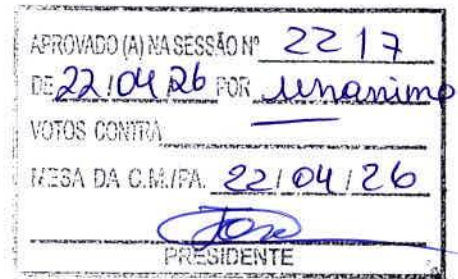 APROVADO (A) NA SESSÃO Nº 2217
DE 22/04/26 POR unanime
VOTOS CONTRA
MESA DA C.M./PA. 22/04/26
PRESIDENTE